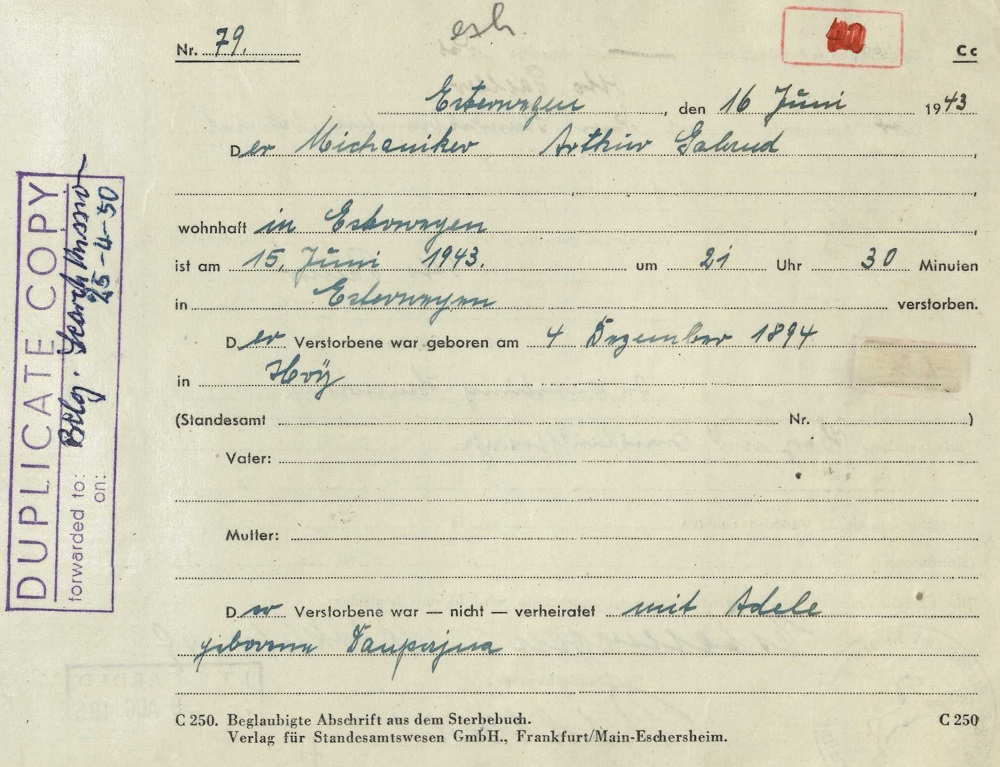 esh.
Nr. 79.
Cc
Esterwegen, den 16 Juni 1943
Der Mechaniker Arthur
wohnhaft in Esterwegen
ist am 15. Juni 1943. um 21 Uhr 30 Minuten
in Esterwegen verstorben.
Der Verstorbene war geboren am 4 Dezember 1894
in
(Standesamt Nr. )
Vater:
Mutter:
Der Verstorbene war — nicht — verheiratet mit Adele
geborene
C 250. Beglaubigte Abschrift aus dem Sterbebuch. C 250
Verlag für Standesamtswesen GmbH., Frankfurt/Main-Eschersheim.
DUPLICATE COPY
forwarded to: Belg. Search Mission
on: 25-4-50